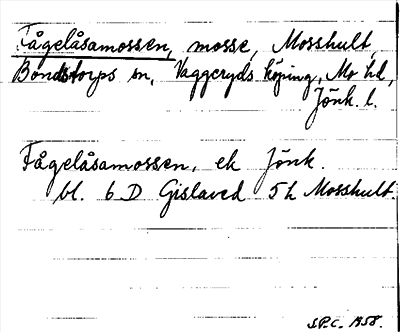 Fågelåsamossen, mosse, Mosshult,
Bondstorps sn, Vaggeryds köping, Mo hd,
Jönk. l.
Fågelåsamossen, ek Jönk.
bl. 6 D Gislaved 5h Mosshult.
S.P.C. 1958.